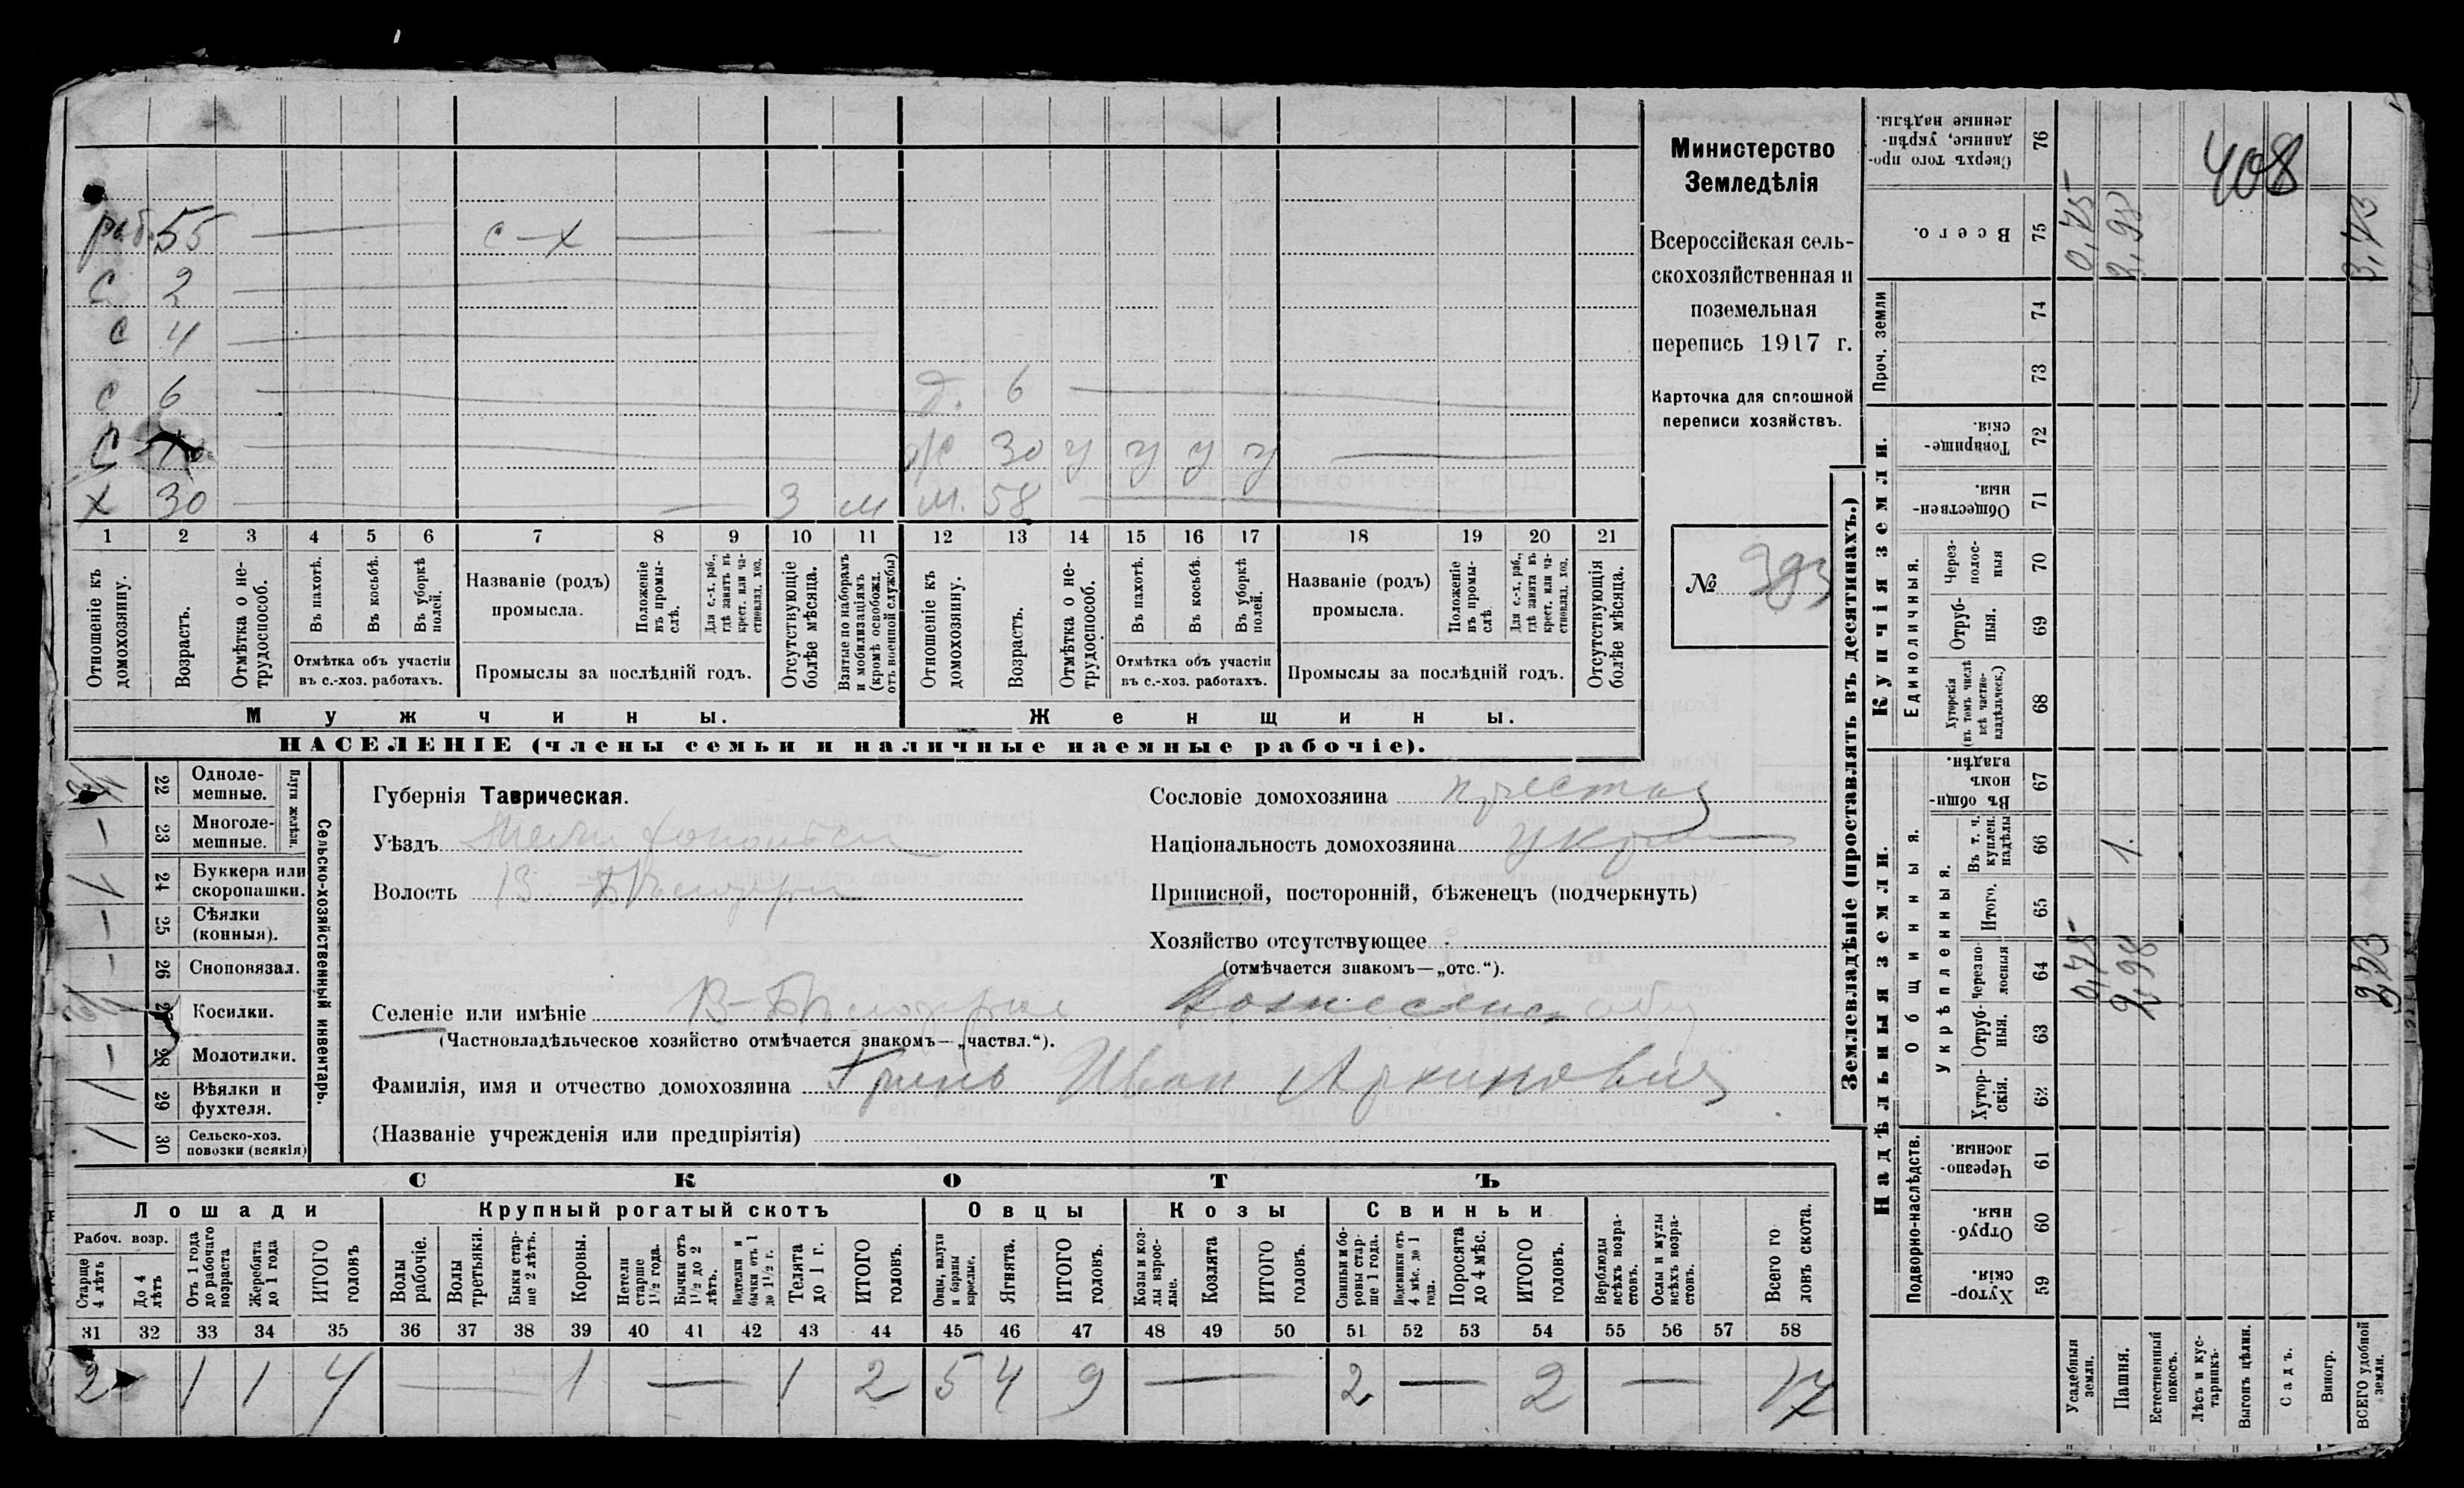 408
Министерство
Земледѣлія
Всероссійская сель-
скохозяйственная и
поземельная
перепись 1917 г.
Карточка для сплошной
переписи хозяйствъ.
№ 393
раб. 55 — с–х — —
с 2 —
с 4 —
с 6 — д. 6 —
с —
ж 30 у у у у —
х 30 — — 3 м м. 58 —
1 2 3 4 5 6 7 8 9 10 11 12 13 14 15 16 17 18 19 20 21
Отношеніе къ домохозяину.
Возрастъ.
Отмѣтка о не-трудоспособ.
Въ пахотѣ.
Въ косьбѣ.
Въ уборкѣ полей.
Отмѣтка объ участіи
въ с.-хоз. работахъ.
Названіе (родъ)
промысла.
Положеніе въ промы-слѣ.
Для с.-х. раб., гдѣ занятъ въ крест. или ча-стновлад. хоз.
Промыслы за послѣдній годъ.
Отсутствующіе болѣе мѣсяца.
Взятые по наборамъ и мобилизаціямъ (кромѣ освобожд. отъ военной службы)
Отношеніе къ домохозяину.
Возрастъ.
Отмѣтка о не-трудоспособ.
Въ пахотѣ.
Въ косьбѣ.
Въ уборкѣ полей.
Отмѣтка объ участіи
въ с.-хоз. работахъ.
Названіе (родъ)
промысла.
Положеніе въ промы-слѣ.
Для с.-х. раб., гдѣ занятъ въ крест. или ча-стновлад. хоз.
Промыслы за послѣдній годъ.
Отсутствующія болѣе мѣсяца.
Мужчины.
Женщины.
НАСЕЛЕНІЕ (члены семьи и наличные наемные рабочіе).
Сельско-хозяйственный инвентарь.
Плуги желѣзн.
22 Одноле-мешные.
— 23 Многоле-мешные.
1 24 Буккера или скоропашки.
— 25 Сѣялки (конныя).
— 26 Сноповязал.
27 Косилки.
— 28 Молотилки.
1 29 Вѣялки и фухтеля.
1 30 Сельско-хоз. повозки (всякія)
Губернія Таврическая.
Уѣздъ
Волость В. Бѣлозерск
Сословіе домохозяина крестья
Національность домохозяина укр
Приписной, посторонній, бѣженецъ (подчеркнуть)
Хозяйство отсутствующее
(отмѣчается знакомъ—„отс.“).
Селеніе или имѣніе В-Бѣлозерка Вознесенск общ
(Частновладѣльческое хозяйство отмѣчается знакомъ—„частвл.“).
Фамилія, имя и отчество домохозяина Гринь Иван Архипович
(Названіе учрежденія или предпріятія)
СКОТЪ
Лошади
Крупный рогатый скотъ
Овцы
Козы
Свиньи
Рабоч. возр.
Старше 4 лѣтъ
До 4 лѣтъ
Отъ 1 года до рабочаго возраста
Жеребята до 1 года
ИТОГО головъ
Волы рабочіе.
Волы третьяки.
Быки стар-ше 2 лѣтъ.
Коровы.
Нетели старше 1½ года.
Бычки отъ 1½ до 2 лѣтъ.
Подтелки и бычки отъ 1 до 1½ г.
Телята до 1 г.
ИТОГО головъ.
Овцы, валухи и бараны взрослые.
Ягнята.
ИТОГО головъ.
Козы и коз-лы взрос-лые.
Козлята
ИТОГО головъ.
Свиньи и бо-ровы стар-ше 1 года.
Подсвинки отъ 4 мѣс. до 1 года.
Поросята до 4 мѣс.
ИТОГО головъ.
Верблюды всѣхъ возра-стовъ.
Ослы и мулы всѣхъ возра-стовъ.
Всего го ловъ скота.
31 32 33 34 35 36 37 38 39 40 41 42 43 44 45 46 47 48 49 50 51 52 53 54 55 56 57 58
2 1 1 4 — 1 — 1 2 5 4 9 — 2 — 2 — 17
Землевладѣніе (проставлять въ десятинахъ.)
Надѣльныя земли.
Купчія земли.
Проч. земли
Подворно-наслѣдств.
Общинныя.
Укрѣпленныя.
Единоличныя.
59 Хутор-скія.
60 Отруб-ныя.
61 Черезпо-лосныя.
62 Хутор-скія.
63 Отруб-ныя.
64 Черезпо-лосныя
65 Итого.
66 Въ т. ч. куплен. надѣлы
67 Въ общи-номъ владѣн.
68 Хуторскія (въ томъ числѣ всѣ частно-владѣльческ.)
69 Отруб-ныя.
70 Через-полос-ныя
71 Обществен-ныя.
72 Товарище-скія.
73
74
75 Всего.
76 Сверхъ того про-данные, укрѣп-ленные надѣлы.
Усадебныя земли. 0,75 0,75
Пашня. 2,98 1. 2,98
Естественный покосъ.
Лѣсъ и кус-тарникъ.
Выгонъ цѣлин.
Садъ.
Виногр.
ВСЕГО удобной земли. 3,73 3,73